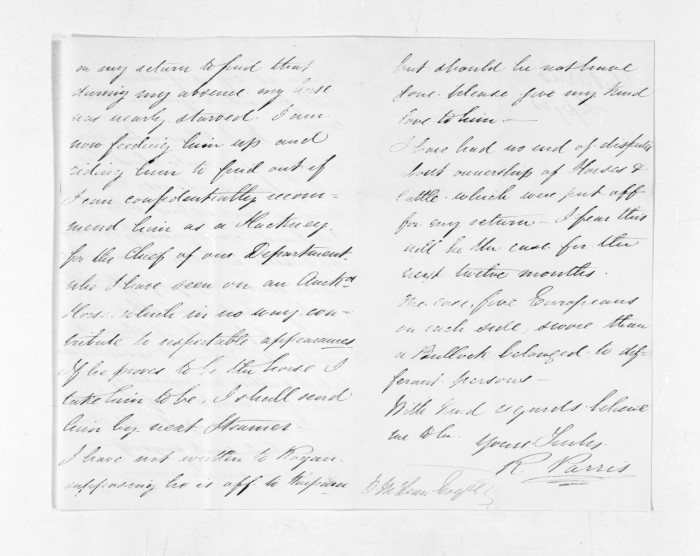 on my return to find that
during my absence my horse
was nearly starved. I am
now feeding him up and
riding him to find out if
I can confidentially recom-
mend him as a Hackney.
for the Chief of our Department.
who I have seen on an Auckd
Horse. which in no way con-
tribute to respectable appearances
If he proves to be the horse I
take him to be. I shall send
him by next Steamer
I have not written to Rogan.
supposing he is off to Kaipara
but should he not have
gone please give my kind
love to him —
I have had no end of disputes
about ownership of Horses &
Cattle. which were put off
for my return — I fear this
will be the case for the
next twelve months.
One case, five Europeans
on each side, swore that
a Bullock belonged to dif-
ferant persons —
With kind regards believe
me to be
Yours Truly
R Parris
D McLean Esq